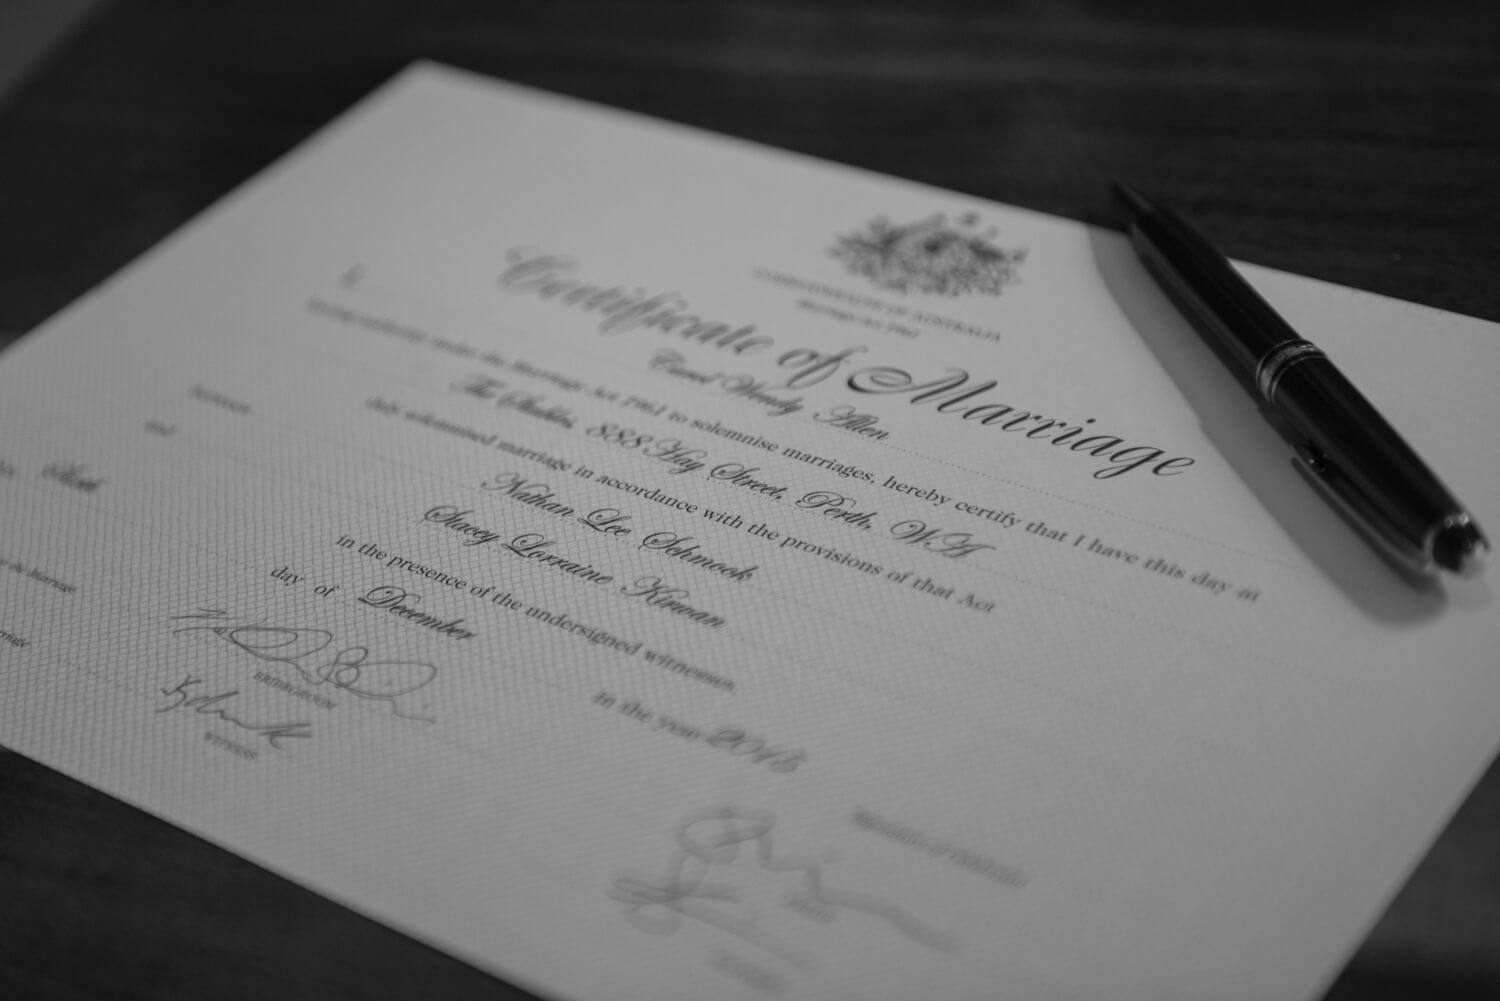 COMMONWEALTH OF AUSTRALIA
Marriage Act 1961
Certificate of Marriage
I, Carol Wendy Allen
having authority under the Marriage Act 1961 to solemnise marriages, hereby certify that I have this day at
The Stables, 888 Hay Street, Perth, WA
duly solemnised marriage in accordance with the provisions of that Act
between Nathan Lee Schmook
and Stacey Lorraine Kirwan
in the presence of the undersigned witnesses.
day of December in the year 2015
BRIDEGROOM
WITNESS